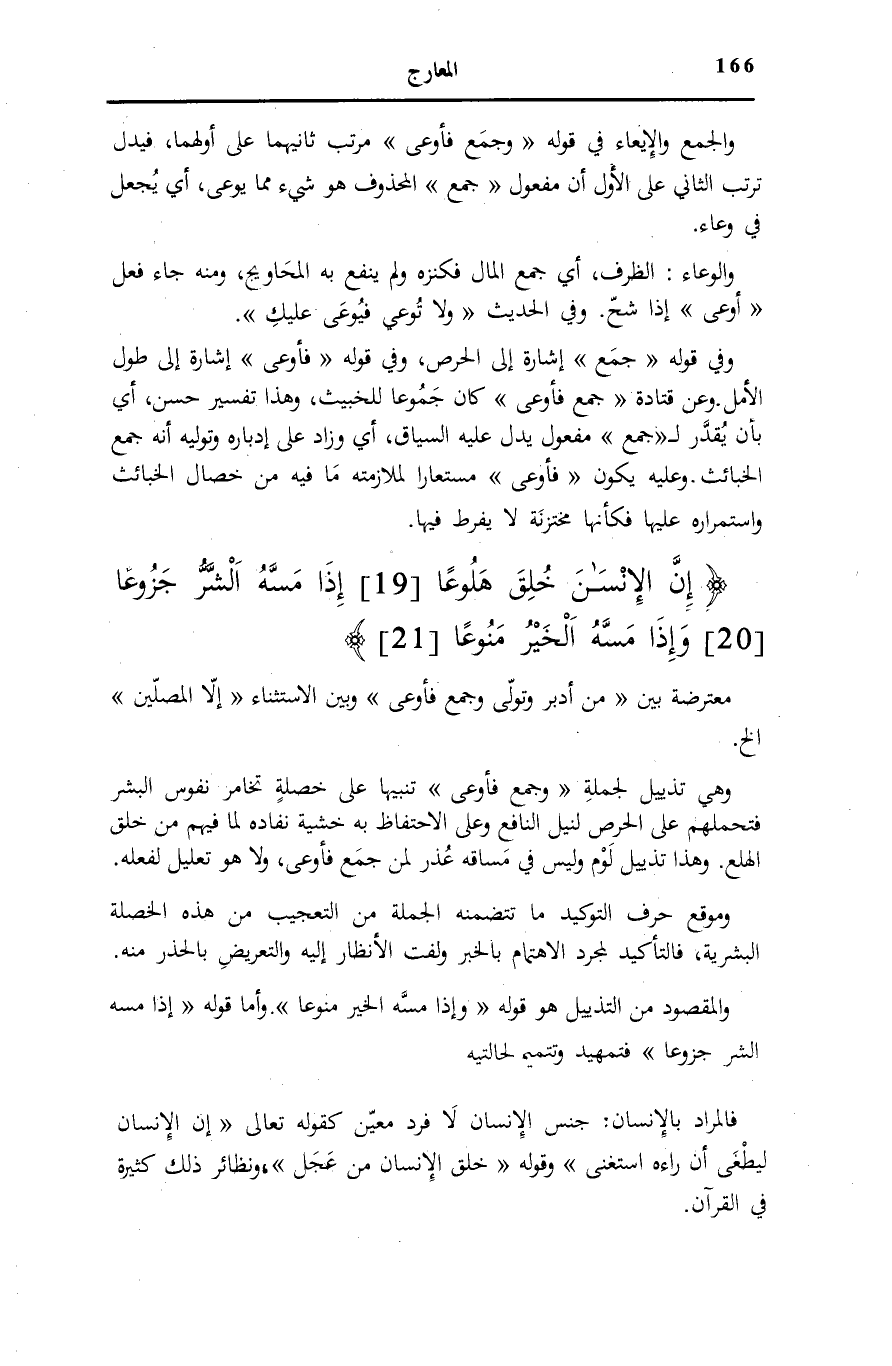 166
المعارج
والجمع والإيعاء في قوله « وجمَع فأوعى » مرتب ثانيهما على أولهما، فيدل
ترتب الثاني على الأول أن مفعول « جمع » المحذوف هو شيء مما يوعى، أي يُجعل
في وعاء.
والوعاء : الظرف، أي جمع المال فكنزه ولم ينفع به المحَاويج، ومنه جاء فعل
« أوعى » إذا شحّ. وفي الحديث « ولا تُوعي فيُوعَى عليكِ ».
وفي قوله « جمَع » إشارة إلى الحرص، وفي قوله « فأوعى » إشارة إلى طول
الأمل.وعن قتادة « جمع فأوعى » كان جَمُوعا للخبيث، وهذا تفسير حسن، أي
بأن يُقدَّر لـ«جمع » مفعول يدل عليه السياق، أي وزاد على إدباره وتوليه أنه جمع
الخبائث.وعليه يكون « فأوعى » مستعارا لملازمته مَا فيه من خصال الخبائث
واستمراره عليها فكأنها مختزنَة لا يفرط فيها.
﴿ إِنَّ الإِنْسَـٰنَ خُلِقَ هَلُوعًا [19] إِذَا مَسَّهُ اَلْشَّرُّ جَزُوعًا
[20] وَإِذَا مَسَّهُ اَلْخَيْرُ مَنُوعًا [21] ﴾
معترضة بين « من أدبر وتولّى وجمع فأوعى » وبين الاستثناء « إلّا المصلّين »
الخ.
وهي تذييل لجملةِ « وجمع فأوعى » تنبيها على خصلةٍ تخامر نفوس البشر
فتحملهم على الحرص لنيل النافع وعلى الاحتفاظ به خشية نفاده لما فيهم من خلق
الهلع. وهذا تذييل لَوْم وليس في مَساقه عُذر لمن جمَع فأوعى، ولا هو تعليل لفعله.
وموقع حرف التوكيد ما تتضمنه الجملة من التعجيب من هذه الخصلة
البشرية، فالتأكيد لمجرد الاهتمام بالخبر ولفت الأنظار إليه والتعريضِ بالحذر منه.
والمقصود من التذييل هو قوله « وإذا مسَّه الخير منوعا ».وأما قوله « إذا مسه
الشر جزوعا » فتمهيد وتتميم لحالتيه
فالمراد بالإنسان: جنس الإنسان لَا فرد معيّن كقوله تعالى « إن الإنسان
ليطْغَى أن راءه استغنى » وقوله « خلق الإنسان من عَجَل »،ونظائر ذلك كثيرة
في القرآن.